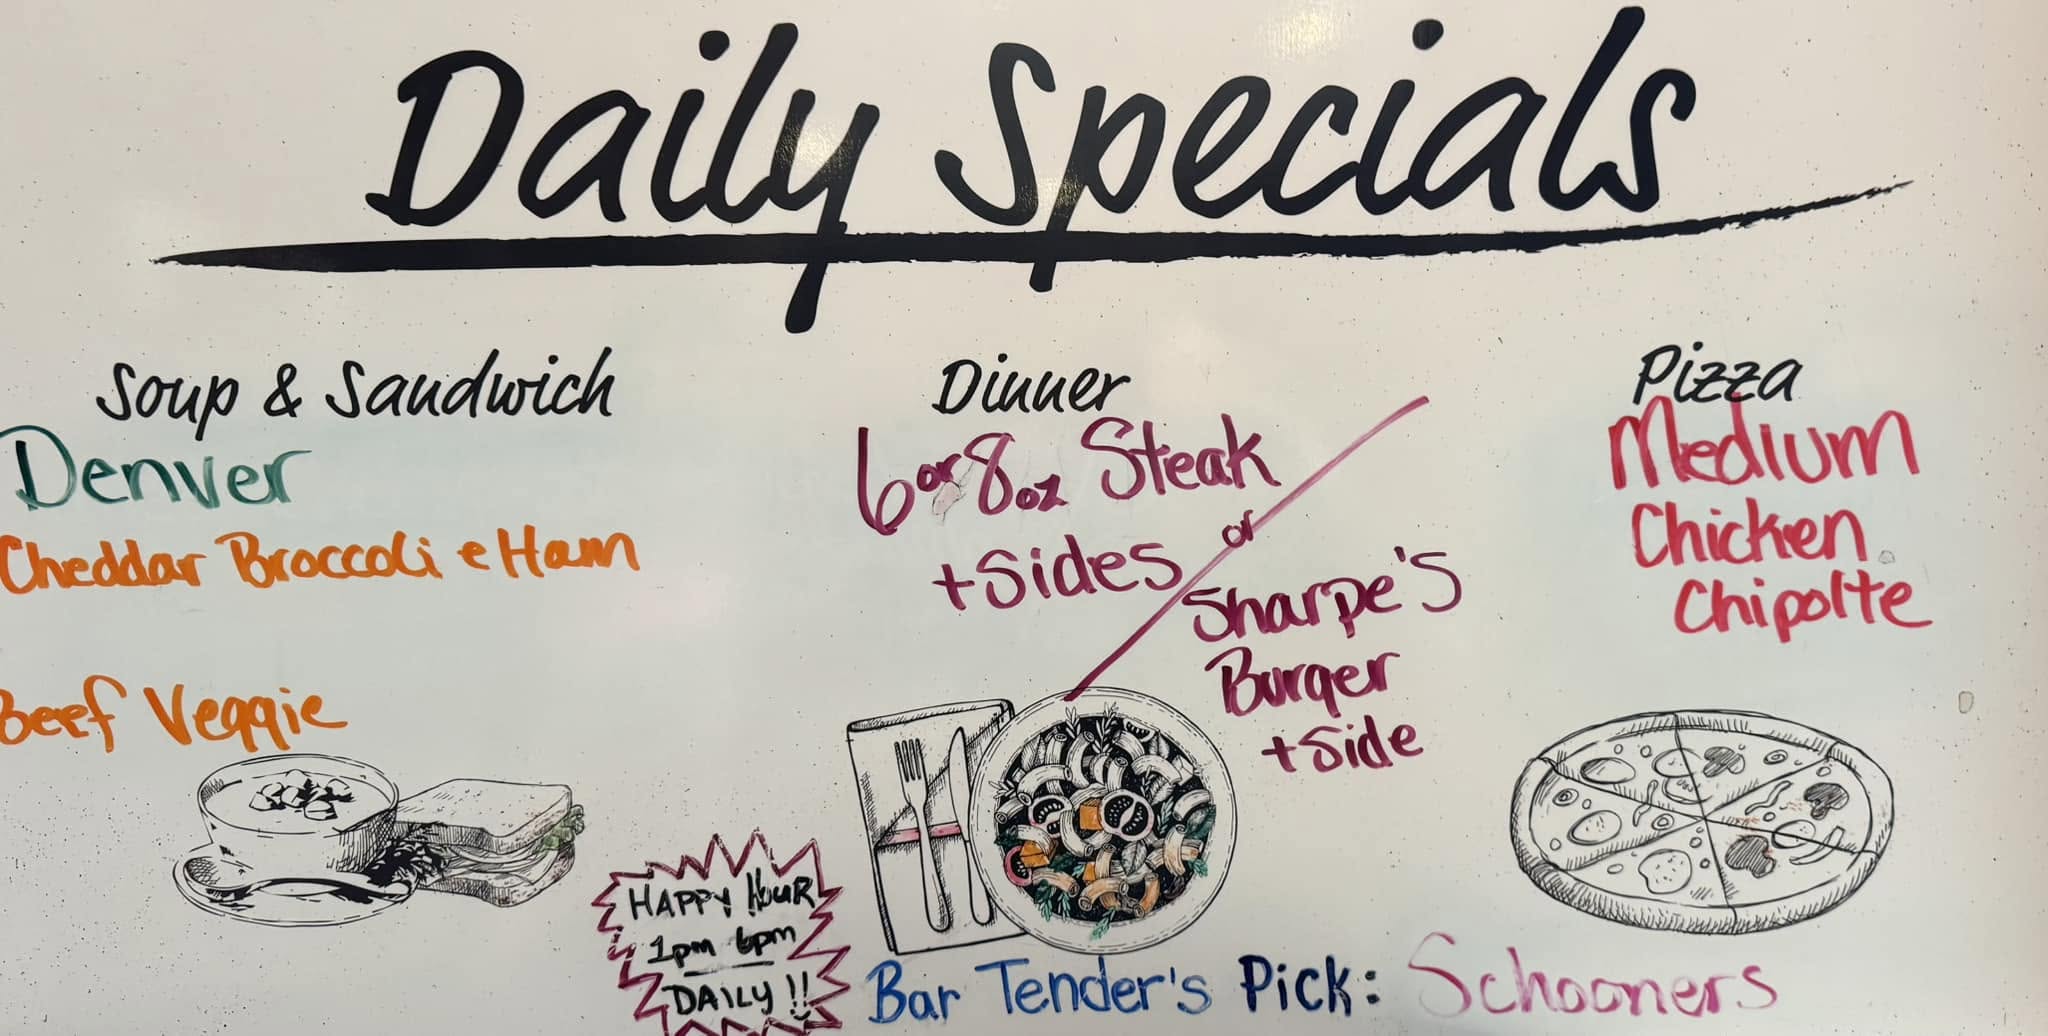 Daily Specials
Soup & Sandwich
Denver
Cheddar Broccoli e Ham
Beef Veggie
Dinner
6 or 8 oz Steak
+ Sides
or
Sharpe's
Burger
+ Side
Pizza
Medium
Chicken
Chipolte
HAPPY HOUR
1pm 6pm
DAILY!!
Bar Tender's Pick: Schooners